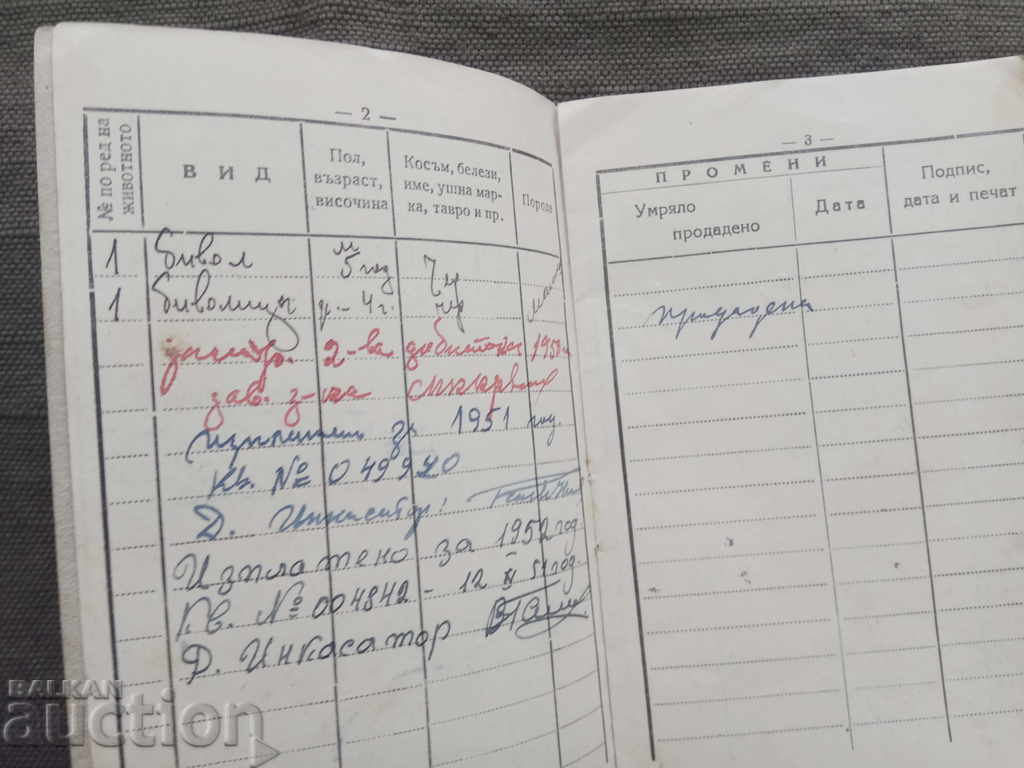 — 2 —
№ по ред на животното
ВИД
Пол, възраст, височина
Косъм, белези, име, ушна марка, тавро и пр.
Порода
1 бивол м 5 год чер
1 биволица 4 г. чер
2-ва 1950
зав. з-ка
за 1951 год.
Кв. № 049920
Д. Инкасатор:
Изплатено за 1952 год.
Кв. № 004842 - 12 XI 51 год.
Д. Инкасатор
— 3 —
ПРОМЕНИ
Умряло продадено
Дата
Подпис, дата и печат
продадена
BALKAN
auction